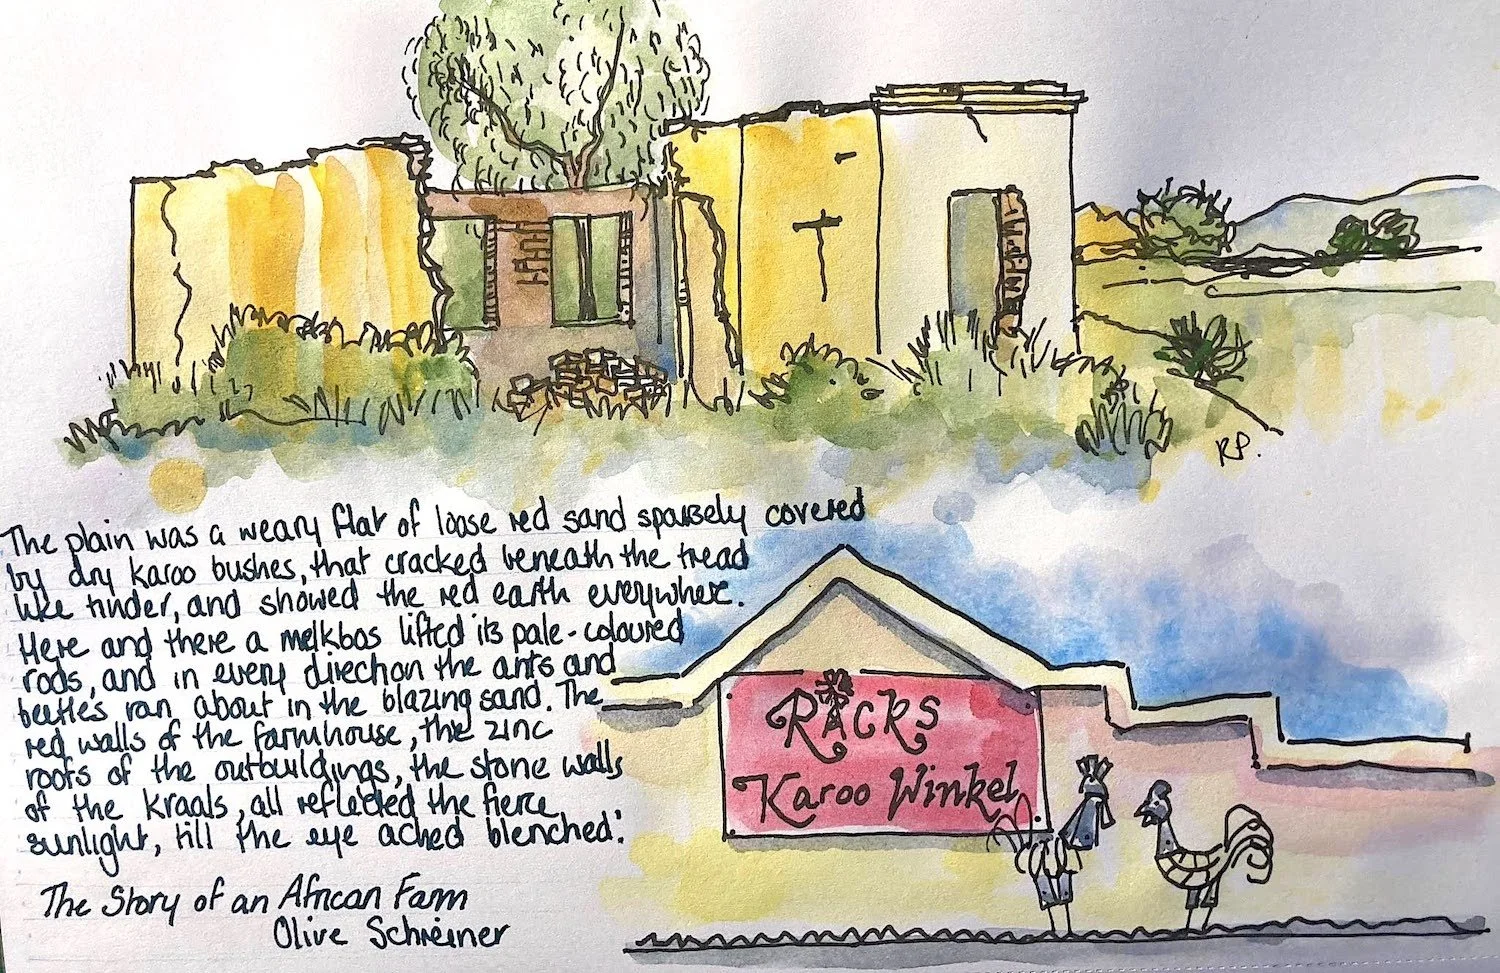 RP.
The plain was a weary flat of loose red sand sparsely covered
by dry karoo bushes, that cracked beneath the tread
like tinder, and showed the red earth everywhere.
Here and there a melkbos lifted its pale-coloured
rods, and in every direction the ants and
beetles ran about in the blazing sand. The
red walls of the farmhouse, the zinc
roofs of the outbuildings, the stone walls
of the kraals, all reflected the fierce
sunlight, till the eye ached blenched.'
The Story of an African Farm
Olive Schreiner
RACKS
Karoo Winkel